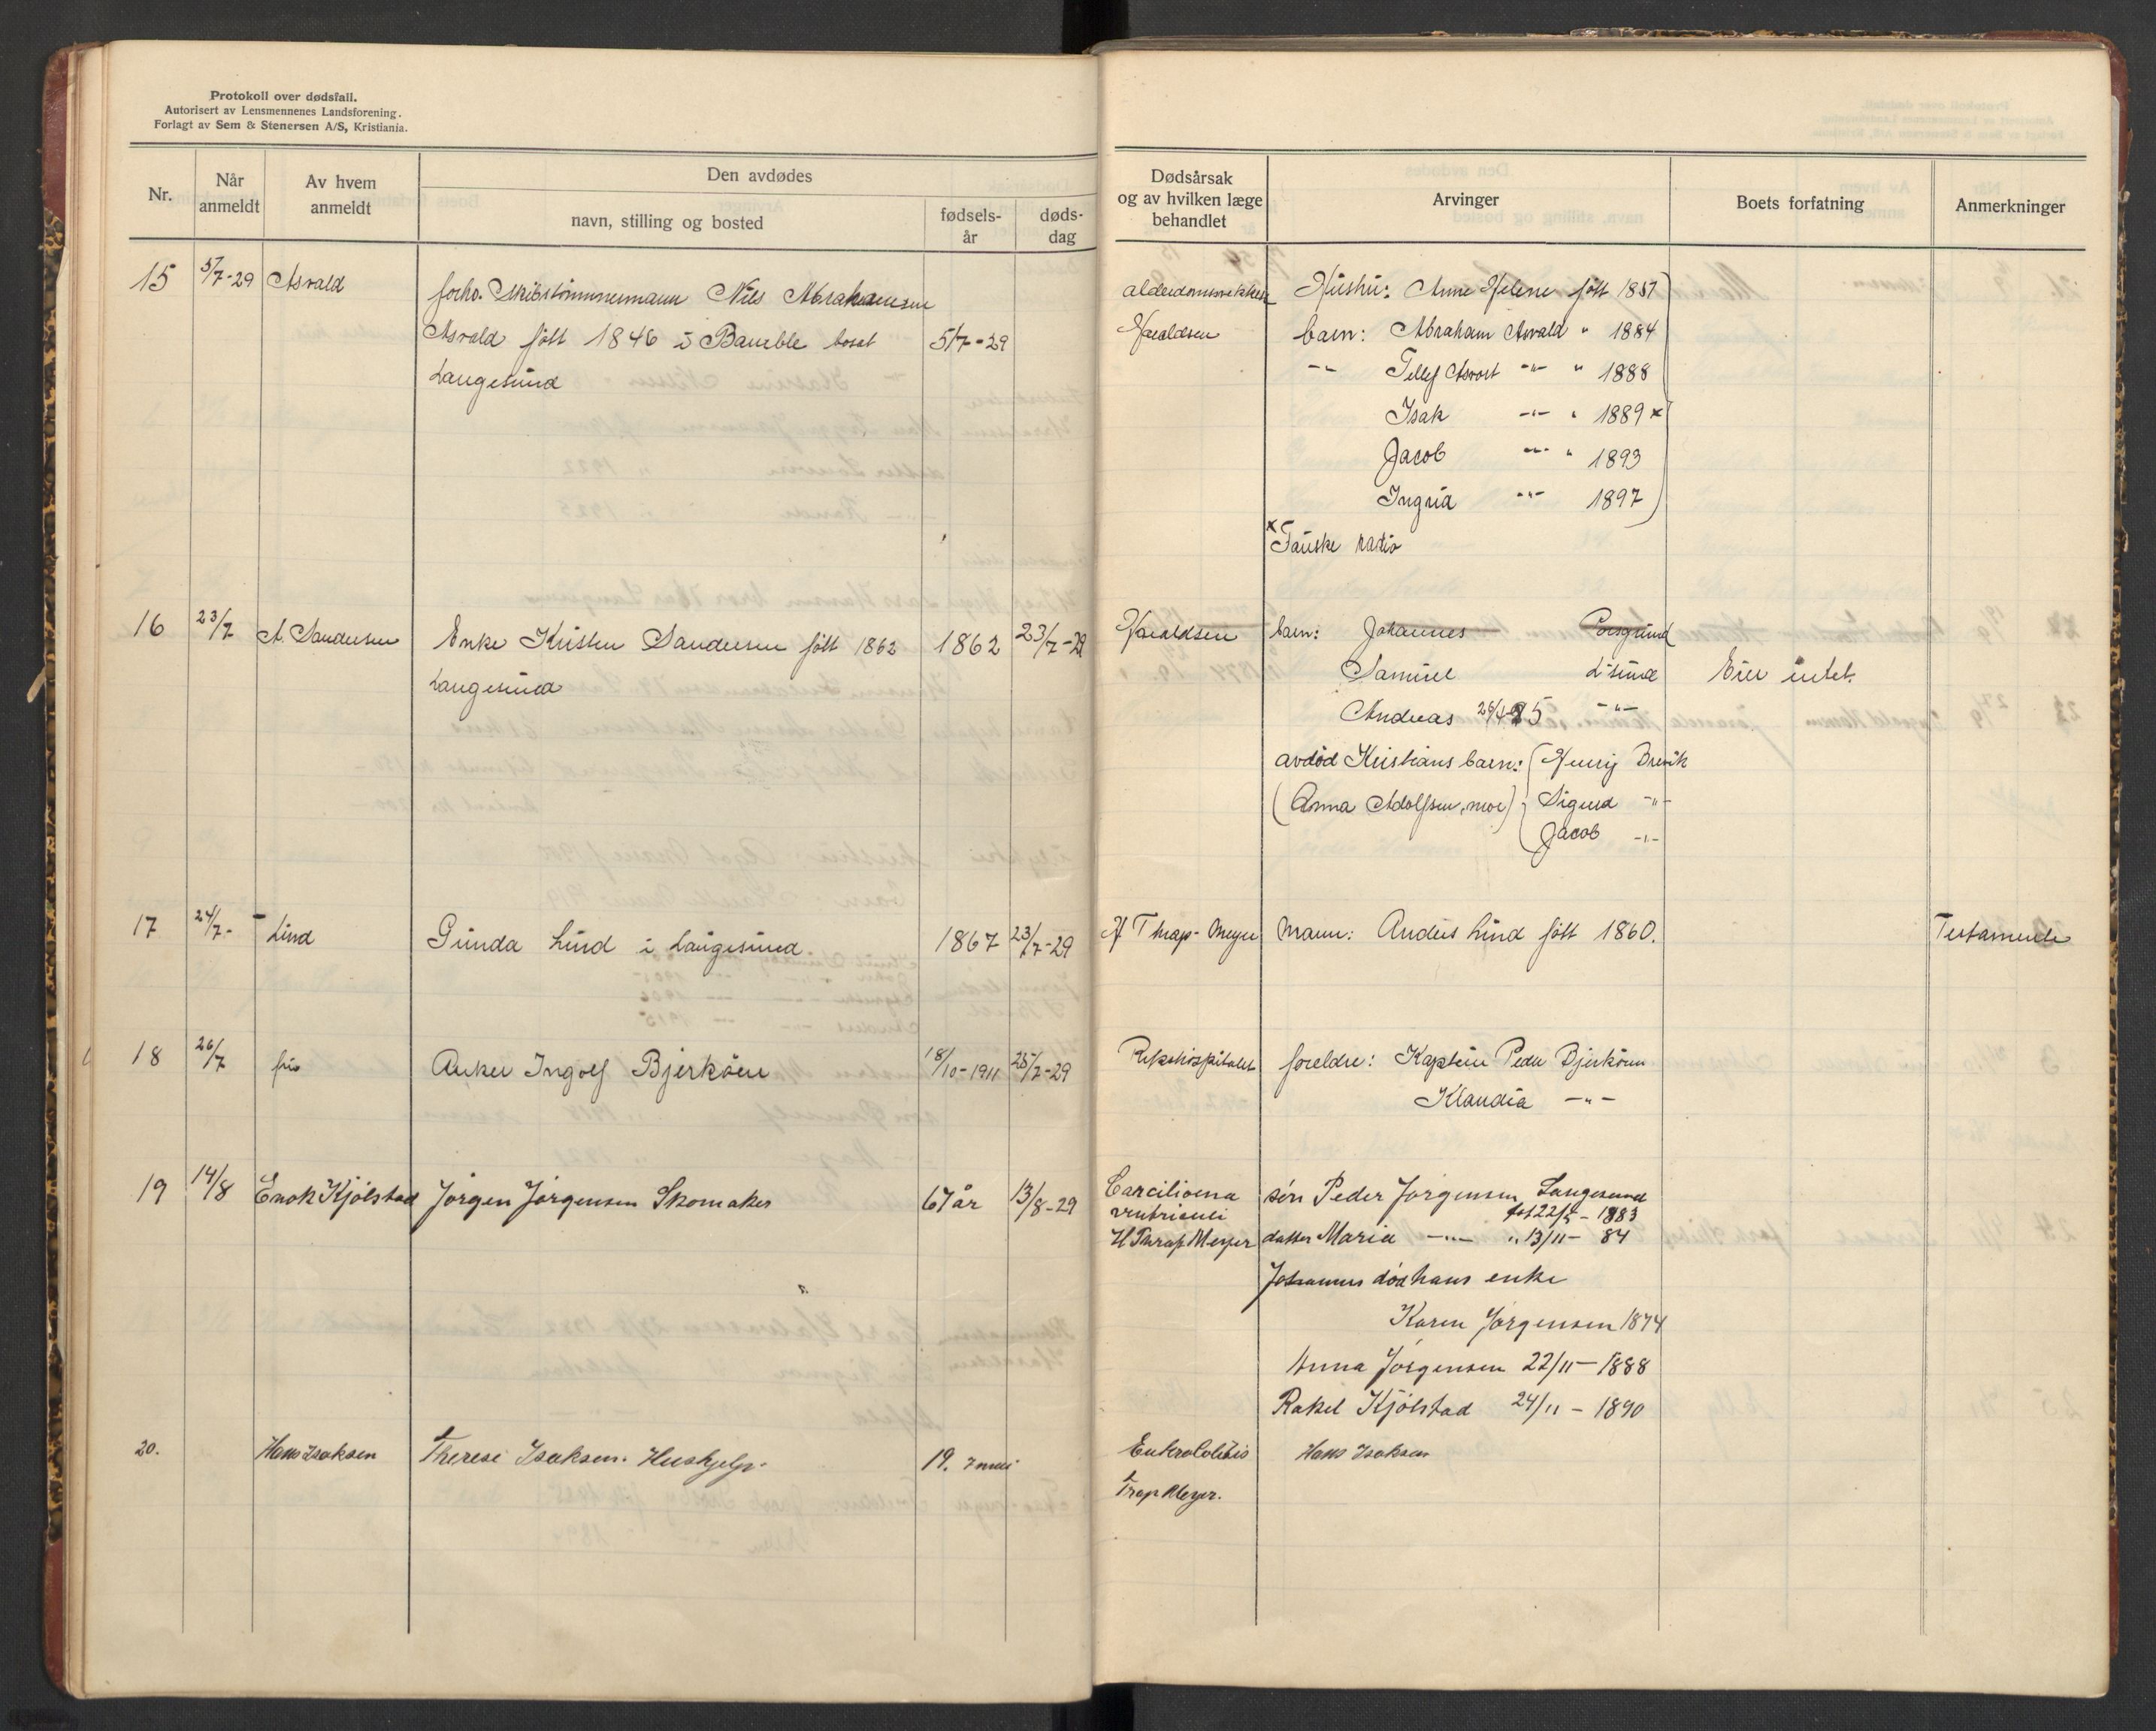 Protokoll over dødsfall.
Autorisert av Lensmennenes Landsforening.
Forlagt av Sem & Stenersen A/S, Kristiania.
Nr.
Når anmeldt
Av hvem anmeldt
Den avdødes
navn, stilling og bosted
fødsels-år
døds-dag
Dødsårsak og av hvilken læge behandlet
Arvinger
Boets forfatning
Anmerkninger
15 5/7-29 Asvald forhv. Skibstömmermann Nils Abrahamsen
Asvald fött 1846 i Bamble bosat 5/7-29
Langesund
alderdomssvekkelse Hustru: Anne Helene fött 1857
Haraldsen barn: Abraham Asvald " 1884
-"- Tellef Asvald -"- " 1888
Isak -"- " 1889 x
Jacob -"- " 1893
Ingrid -"- 1897
x Fauske radio
16 23/7 A. Sandersen Enke Kristen Sandersen fött 1862 1862 23/7-29
Langesund
Haraldsen barn: Johannes Porsgrund
Samuel L'sund Eier intet.
Andreas -"-
avdöd Kristians barn: Henrij Brevik
(Anna Adolfsen, mor) Sigurd -"-
Jacob -"-
17 24/7- Lind Gunda Lind i Langesund 1867 23/7-29
H Thrap-Meyer Mann: Anders Lind fött 1860. Testamente
18 26/7 fru Anker Ingolf Bjerköen 18/10-1911 25/7-29
Rikshospitalet foreldre: Kaptein Peder Bjerköen
Klaudia -"-
19 14/8 Enok Kjölstad Jörgen Jörgensen Skomaker 67 år 13/8-29
Carcilioma sön Peder Jörgensen Langesund
ventriculi 1883
H Thrap Meyer datter Maria -"- " 13/11- 84
Johannes död hans enke
Karen Jörgensen 1874
Anna Jörgensen 22/11-1888
Rakel Kjölstad 24/11-1890
20. Hans Isaksen Therese Isaksen. Hushjelp. 19.
Hans Isaksen
Trap Meyer.